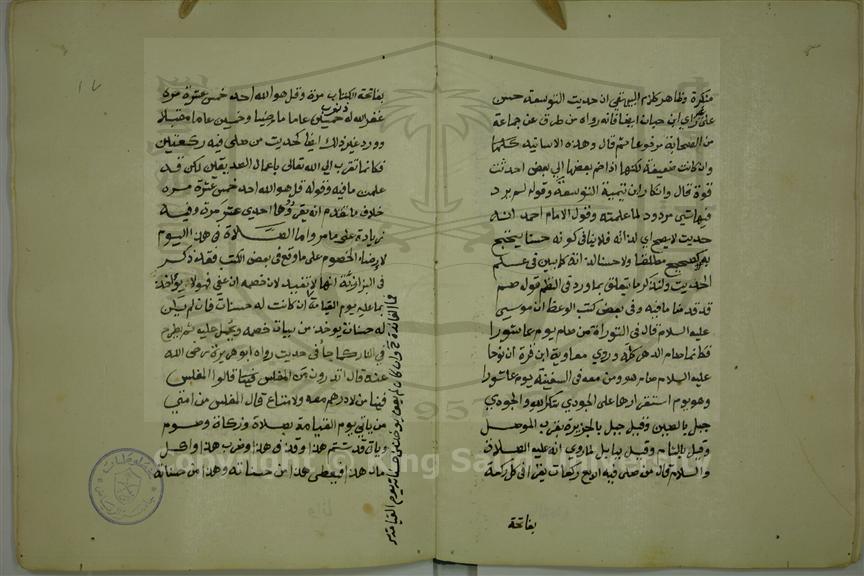 منكرة وظاهر كلام البيهقي ان حديث التوسعة حسن
على راي ابن حبان ايضا فانه رواه من طرق عن جماعة
من الصحابة مرفوعا ثم قال وهذه الاسانيد كلها
وان كانت ضعيفة لكنها اذا ضم بعضها الى بعض احدثت
قوة قال وانكار ابن تيمية التوسعة وقوله لم يرد
فيها شي مردود لما علمته وقول الامام احمد انه
حديث لا يصح اي لذاته فلا ينافي كونه حسنا يحتج
الصحيح مطلقا ولا حسنا لذاته كما بين في علم
الحديث ولنذكر ما يتعلق بما ورد في النظم قوله صم
قد قدمنا ما فيه وفي بعض كتب الوعظ ان موسى
عليه السلام قال في التوراة من صام يوم عاشورا
فكانما صام الدهر كله وروي معاوية ابن قرة ان نوحا
عليه السلام صام هو ومن معه في السفينة يوم عاشورا
وهو يوم استقرارها على الجودي شكرا لله والجودي
جبل بالصين وقيل جبل بالجزيرة بقرب الموصل
وقيل بالشام وقيل ببابل لما روي انه عليه الصلاة
والسلام قال من صلى فيه اربع ركعات يقرا في كل ركعة
بفاتحة
١٧
بفاتحة الكتاب مرة وقل هو الله احد خمس عشرة مرة
غفر الله له ذنوب خمسين عاما ماضيا وخمسين عاما مقبلا
وورد غير ذلك ايضا كحديث من صلى فيه ركعتين
فكانما تقرب الى الله تعالى باعمال الصديقين لكن قد
علمت ما فيه وقوله قل هو الله احد خمس عشرة مرة
خلاف ما تقدم انه يقرؤها احدى عشر مرة وفيه
زيادة على ما مر واما الصلاة في هذا اليوم
لارضاء الخصوم على ما وقع في بعض الكتب فقد ذكر
في البزازية انها لا تفيد لان خصمه ان عفي فبولا يواخذ
بما عليه يوم القيامة ان كانت له حسنات فان لم يكن
له حسنات يوخذ من سيئات خصمه ويحمل عليه ثم يطرح
في النار كما جا في حديث رواه ابو هريرة رضي الله
عنه قال اتدرون من المفلس فينا قالوا المفلس
فينا من لا درهم معه ولا متاع قال المفلس من امتي
من ياتي يوم القيامة بصلاة وزكاة وصوم
وياتي قد شتم هذا وقذف هذا وضرب هذا واكل
مال هذا فيعطى هذا من حسناته وهذا من حسناته
فما الفائدة ح وان كان لم يعف يوخذ من حسناته يوم القيامة